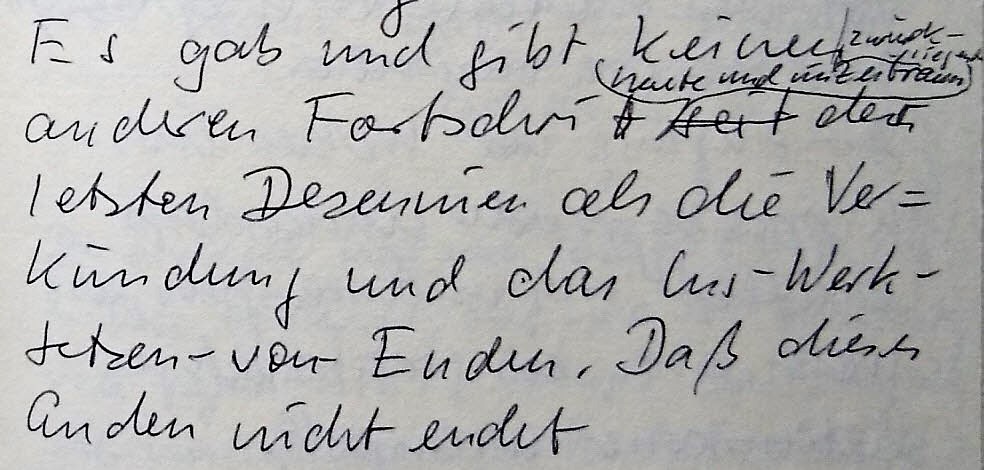 Es gab und gibt keinen zurück-
liegenden
(heute und im Zeitraum)
anderen Fortschritt seit der
letzten Dezennien als die Ver=
kündung und das Ins-Werk-
setzen-von Enden. Daß dieses
Enden nicht endet